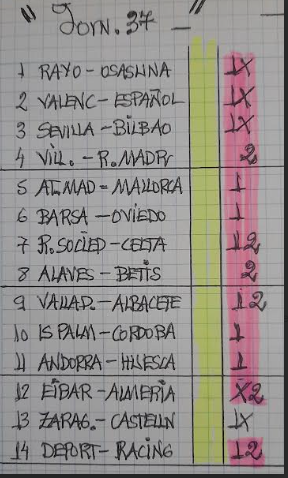 " Jorn. 37 - "
1 RAYO - OSASUNA 1X
2 VALENC - ESPAÑOL 1X
3 SEVILLA - BILBAO 1X
4 VILL. - R. MADR 2
5 AT. MAD - MALLORCA 1
6 BARSA - OVIEDO 1
7 R. SOCIED - CELTA 12
8 ALAVES - BETIS 2
9 VALLAD. - ALBACETE 12
10 IS PALM - CORDOBA 1
11 ANDORRA - HUESCA 1
12 EIBAR - ALMERIA X2
13 ZARAG. - CASTELLN 1X
14 DEPORT - RACING 12